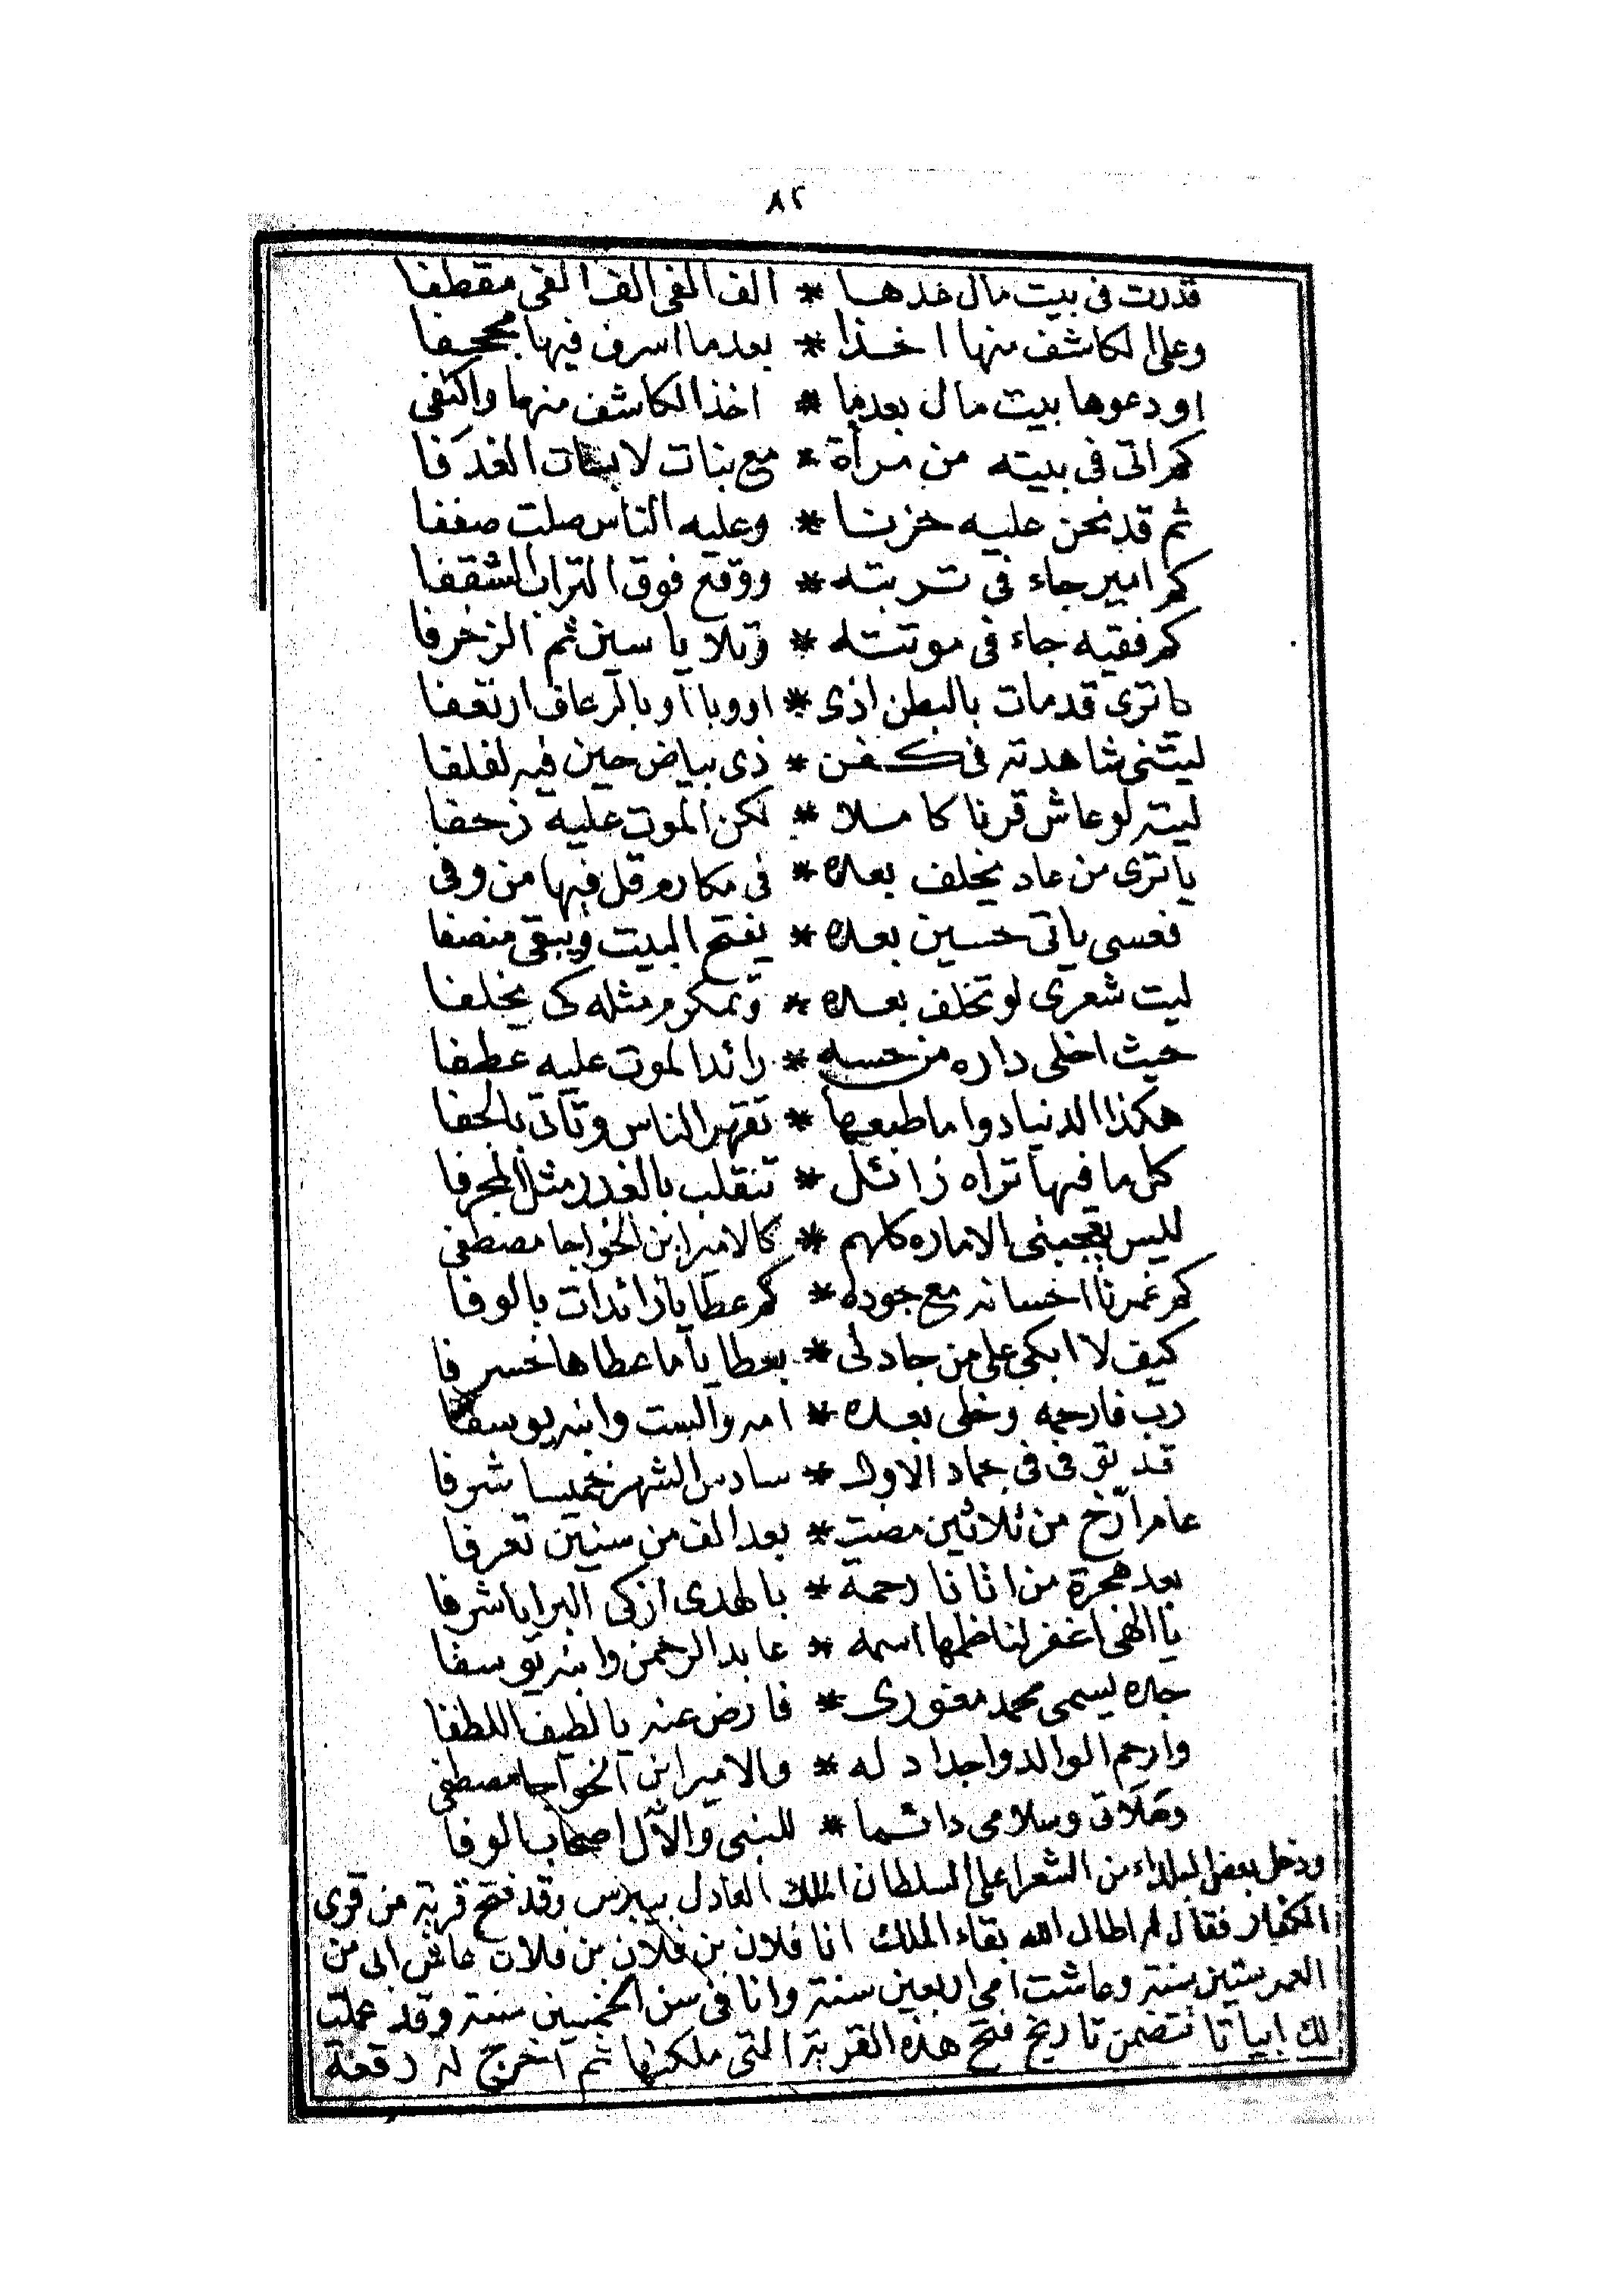 ٨٢
قدرت فى بيت مال خدها * الف الفى الف الفى مقطفا
وعلى الكاشف منها اخذا * بعد ما اسرف فيها مجحفا
اودعوها بيت مال بعدما * اخذ الكاشف منها واكتفى
كم اتى فى بيته من مرأة * مع بنات لابسات الغدفا
ثم قد نحن عليه حزنا * وعليه الناس صلت صففا
كم امير جاء فى تربته * ووقع فوق التراب الشقفا
كم فقيه جاء فى موتته * وتلا ياسين ثم الزخرفا
يا ترى قد مات بالبطن اذى * اووبا أو بالرعاف ارتعفا
ليتنى شاهدته فى كفن * ذى بياض حين فيه لفلفا
ليته لو عاش قرنا كاملا * لكن الموت عليه زحفا
يا ترى من عاد يخلف بعده * فى مكارم قل فيها من وفى
فعسى ياتى حسين بعده * يفتح البيت ويبقى منصفا
ليت شعرى لو تخلف بعده * وتمكرم مثله كى يخلفا
حيث اخلى داره من حسه * رائد الموت عليه عطفا
هكذا الدنيا دواما طبعها * تقهر الناس وتأتى بالجفا
كل ما فيها تراه زائل * تنقلب بالغدر مثل المجرفا
ليس يعجبنى الاماره كلهم * كالامير ابن الخواجا مصطفى
كم غمرنا احسانه مع جوده * كم عطايا زائدات بالوفا
كيف لا ابكى على من جاد لى * بعطايا ما عطاها خسرفا
رب فارحمه وخلى بعده * امه والست وابنه يوسفا
قد توفى فى جماد الاول * سادس الشهر خميسا شرفا
عام أرخ من ثلاثين مضت * بعد الف من سنين تعرفا
بعد هجرة من اتانا رحمة * بالهدى ازكى البرايا شرفا
يا الهى اغفر لناظمها اسمه * عابد الرحمن وابنه يوسفا
جده يسمى محمد مغورى * فارض عنه يا لطيف اللطفا
وارحم الوالد واجداد له * والامير ابن الخواجا مصطفى
وصلاتى وسلامى دائما * للنبى والآل اصحاب الوفا
ودخل بعض البلداء من الشعرا على السلطان الملك العادل بيبرس وقد فتح قرية من قرى
الكفار فقال له اطال الله بقاء الملك انا فلان بن فلان من فلان عاش ابى من
العمر ستين سنة وعاشت امى اربعين سنة وانا فى سن الخمسين سنة وقد عملت
لك ابياتا تتضمن تاريخ فتح هذه القرية التى ملكتها ثم اخرج له رقعة